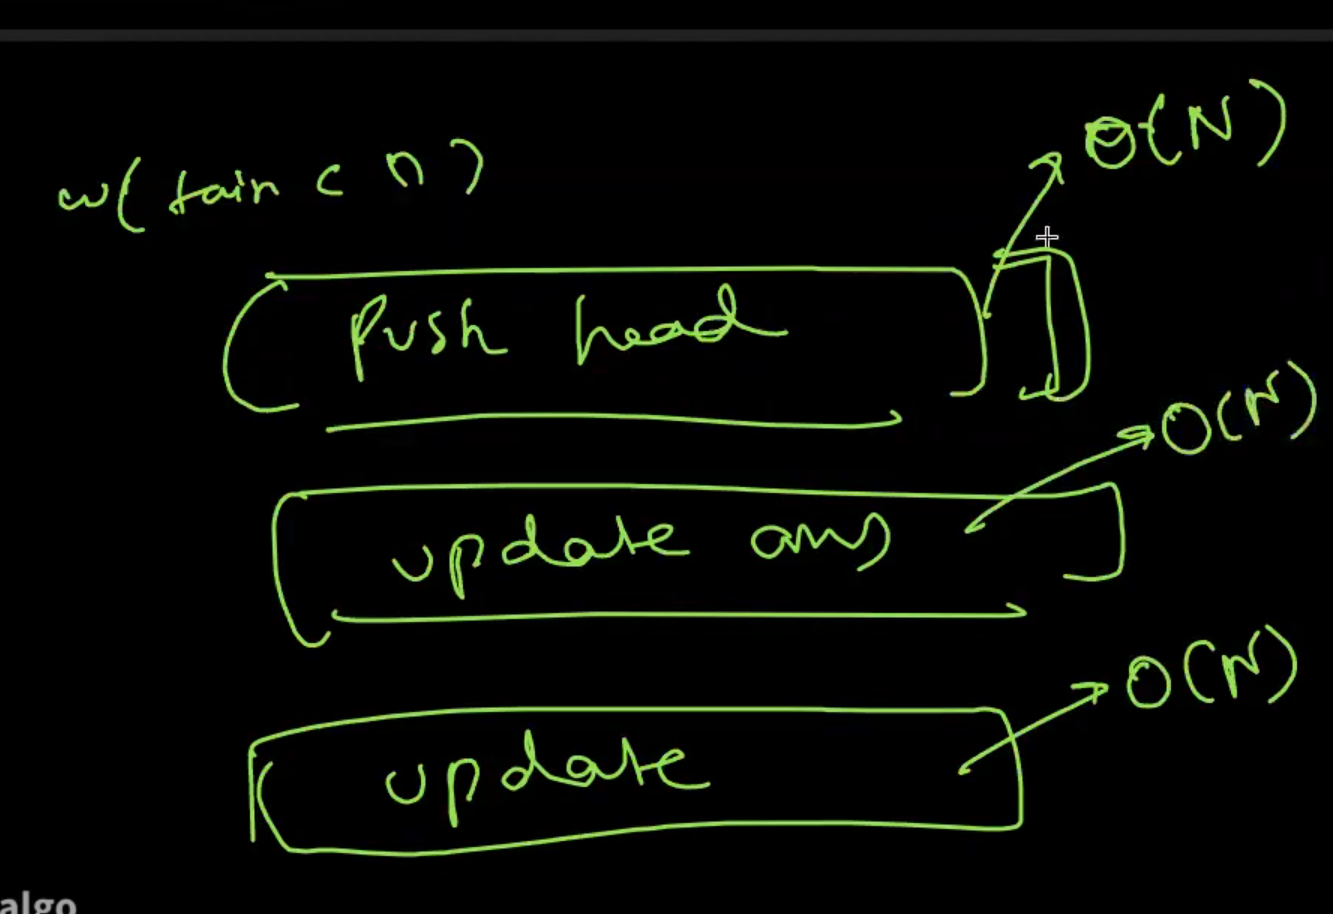 w( tain < n )
O(N)
Push head
O(N)
update ans
O(N)
update
algo